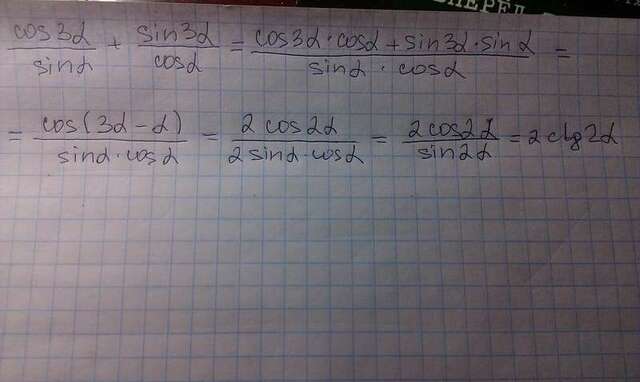 ПЕРЁД
cos3α/sinα + sin3α/cosα = (cos3α·cosα + sin3α·sinα)/(sinα · cosα) =
= cos(3α-α)/(sinα·cosα) = 2cos2α/(2sinα·cosα) = 2cos2α/sin2α = 2ctg2α